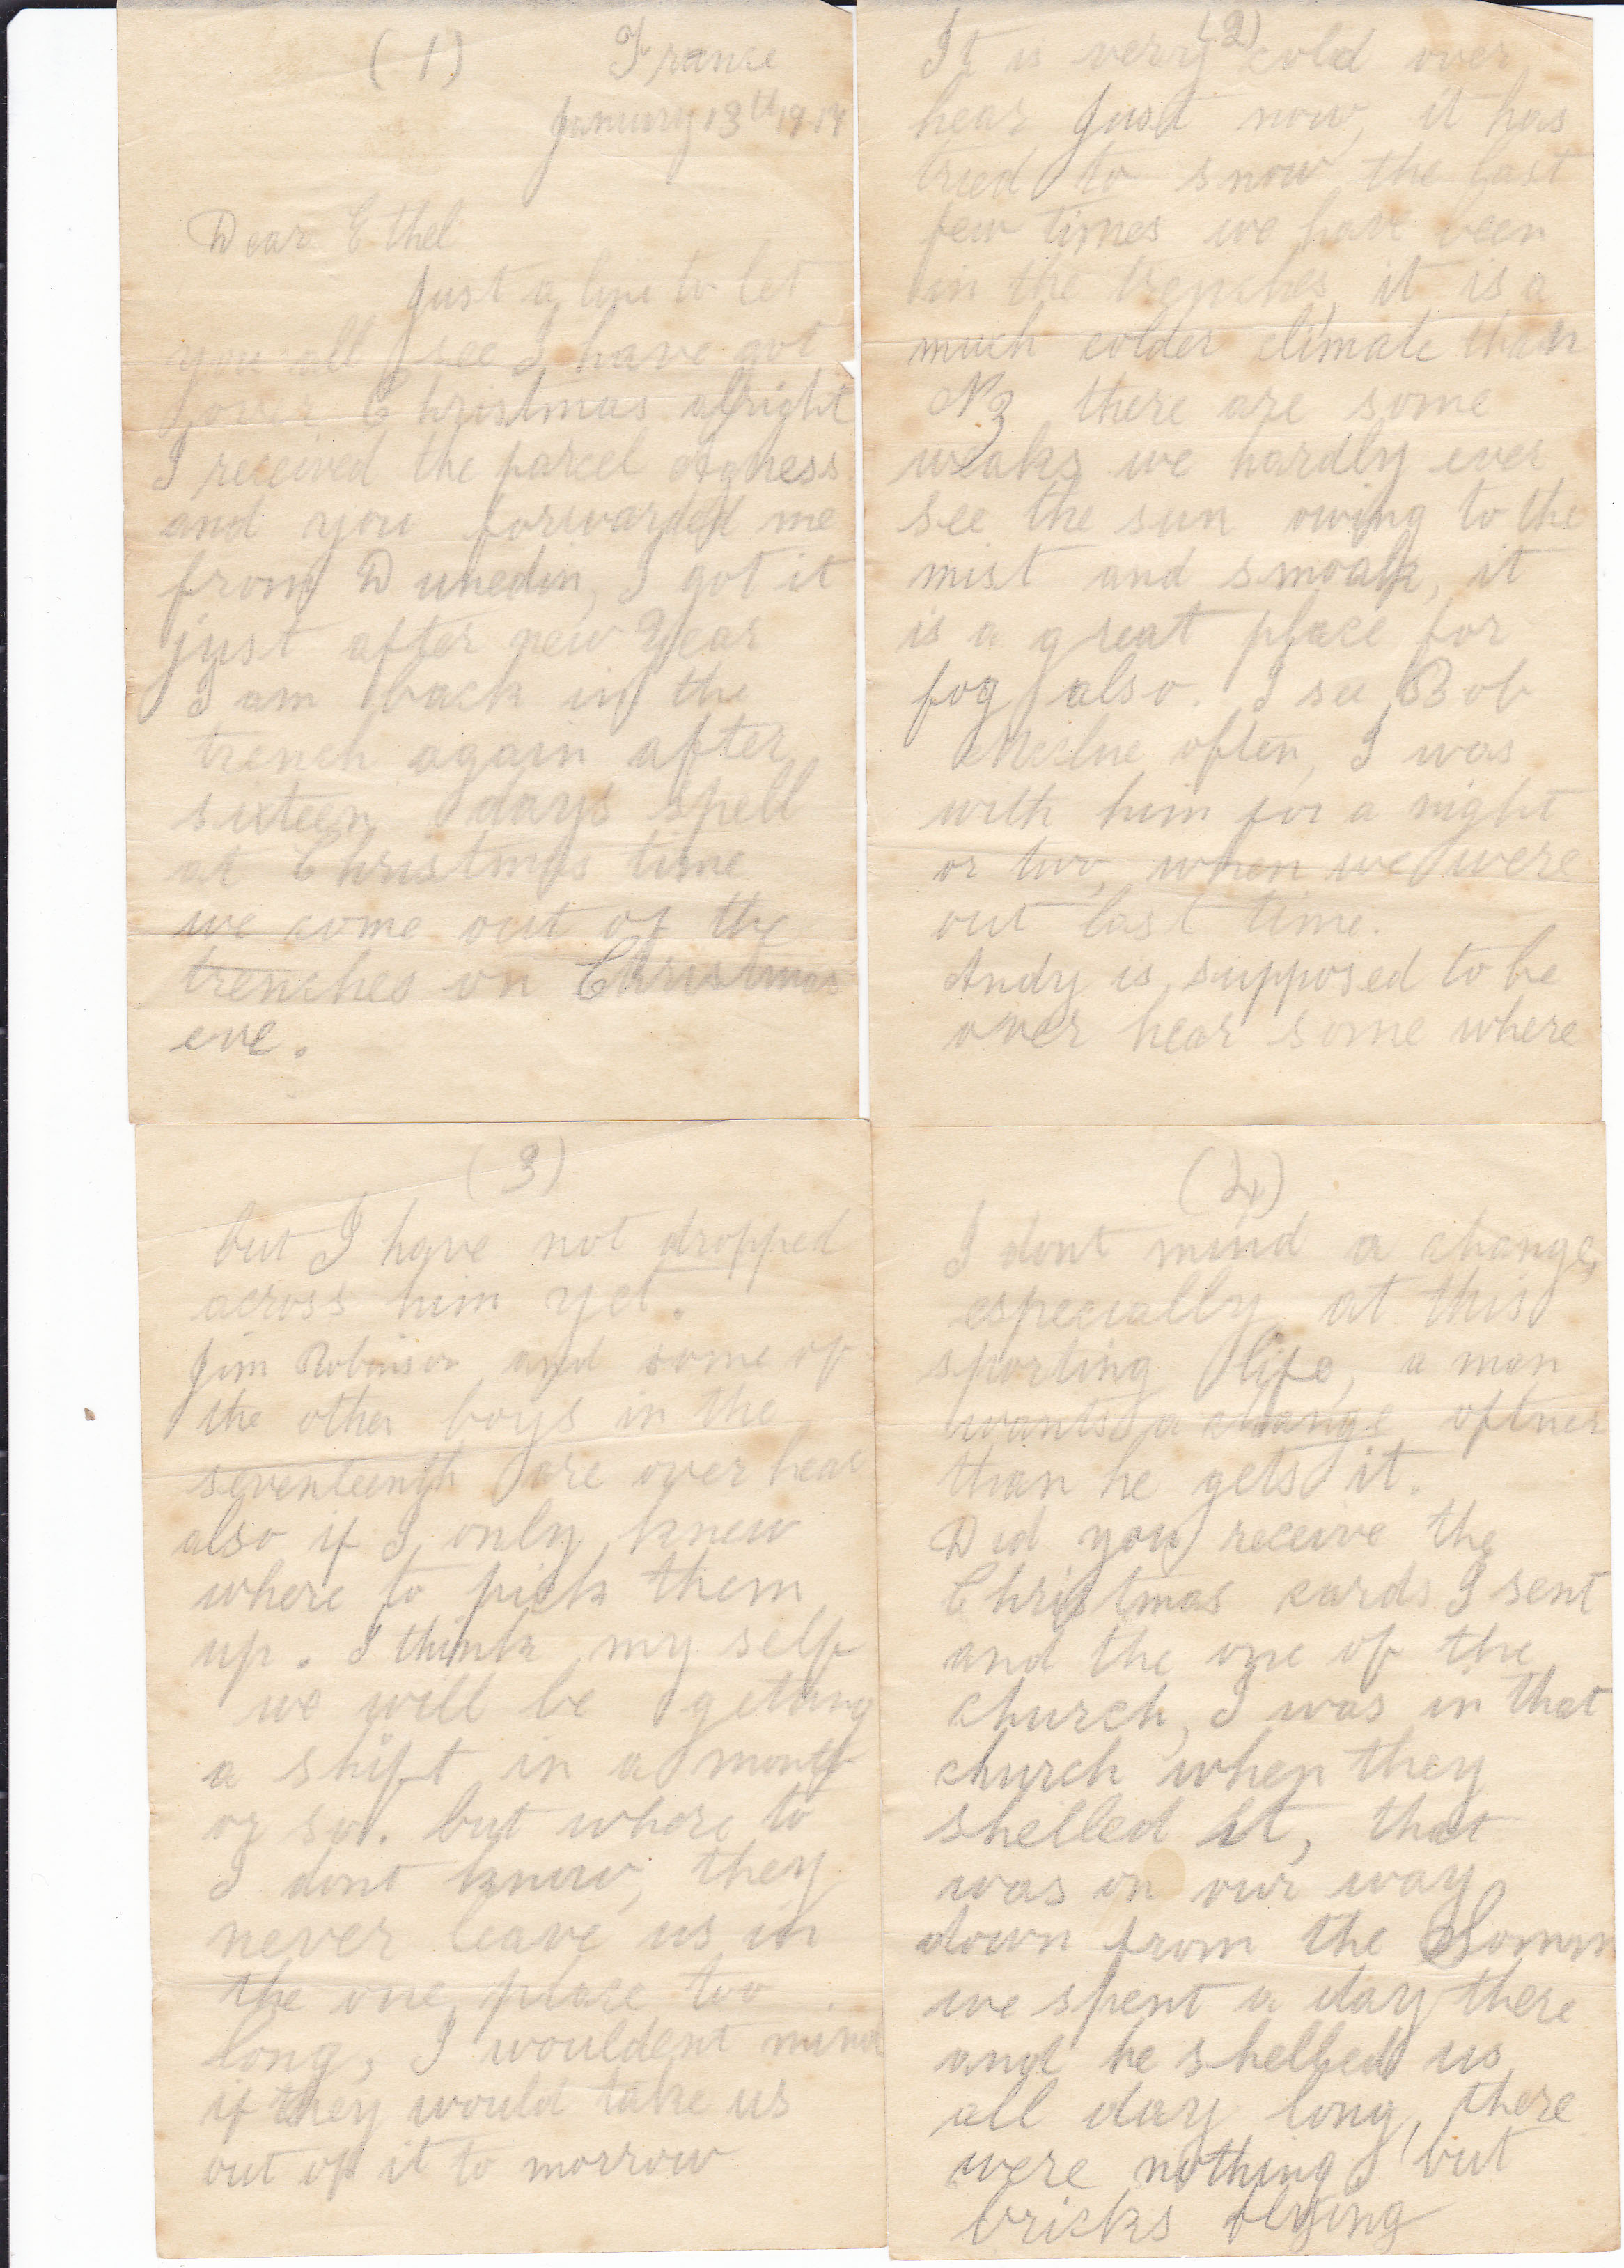 (1) France
January 13th 1917
Dear Ethel
Just a line to let
you all see I have got
over Christmas alright
I received the parcel Agness
and you forwarded me
from Dunedin, I got it
just after new Year
I am back in the
trench again after
sixteen days spell
at Christmas time
we come out of the
trenches on Christmas
eve.
(2)
It is very cold over
hear just now, it has
tried to snow the last
few times we have been
in the trenches, it is a
much colder climate than
NZ there are some
weaks we hardly ever
see the sun owing to the
mist and smoak, it
is a great place for
fog also. I see Bob
often, I was
with him for a night
or two, when we were
out last time.
Andy is supposed to be
over hear some where
(3)
but I have not dropped
across him yet.
Jim Robinson and some of
the other boys in the
seventeenth are over hear
also if I only knew
where to pick them
up. I think my self
we will be geting
a shift in a month
or so. but where to
I dont know, they
never leave us in
the one place too
long, I wouldent mind
if they would take us
out of it to morrow
(4)
I dont mind a change,
especially at this
sporting life, a man
wants a change oftner
than he gets it.
Did you receive the
Christmas cards I sent
and the one of the
church, I was in that
church when they
shelled it, that
was on our way
down from the Somm
we spent a day there
and he shelled us
all day long, there
were nothing but
bricks flying